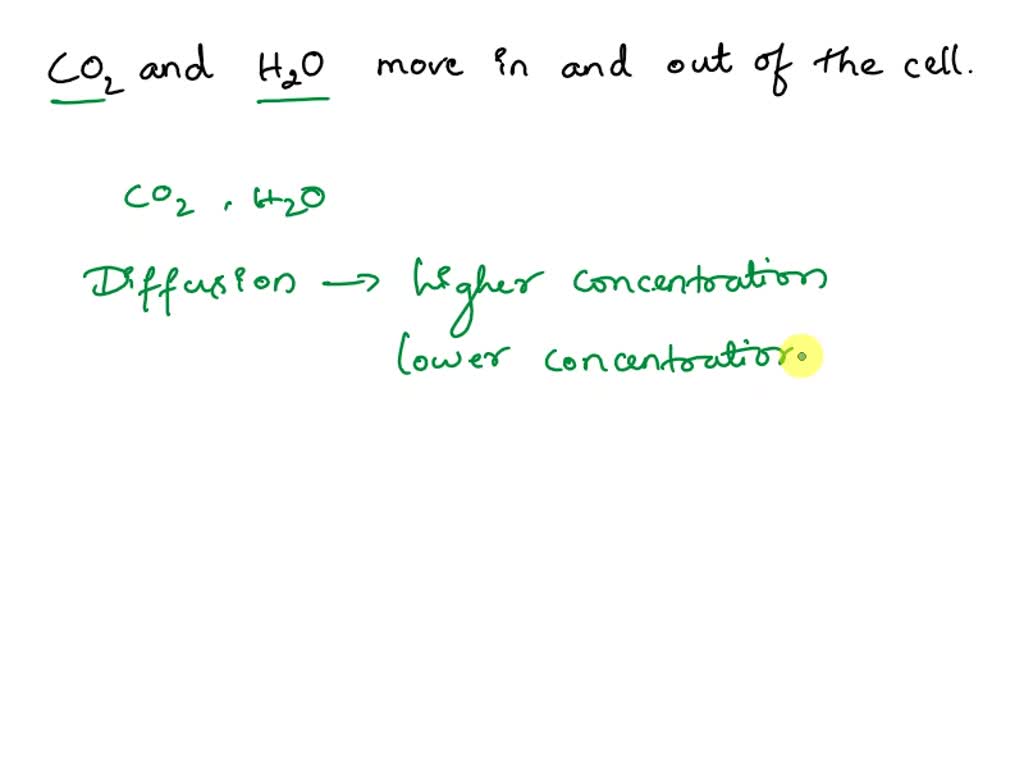 CO₂ and H₂O move in and out of the cell.
CO₂ , H₂O
Diffusion → higher concentration
lower concentration